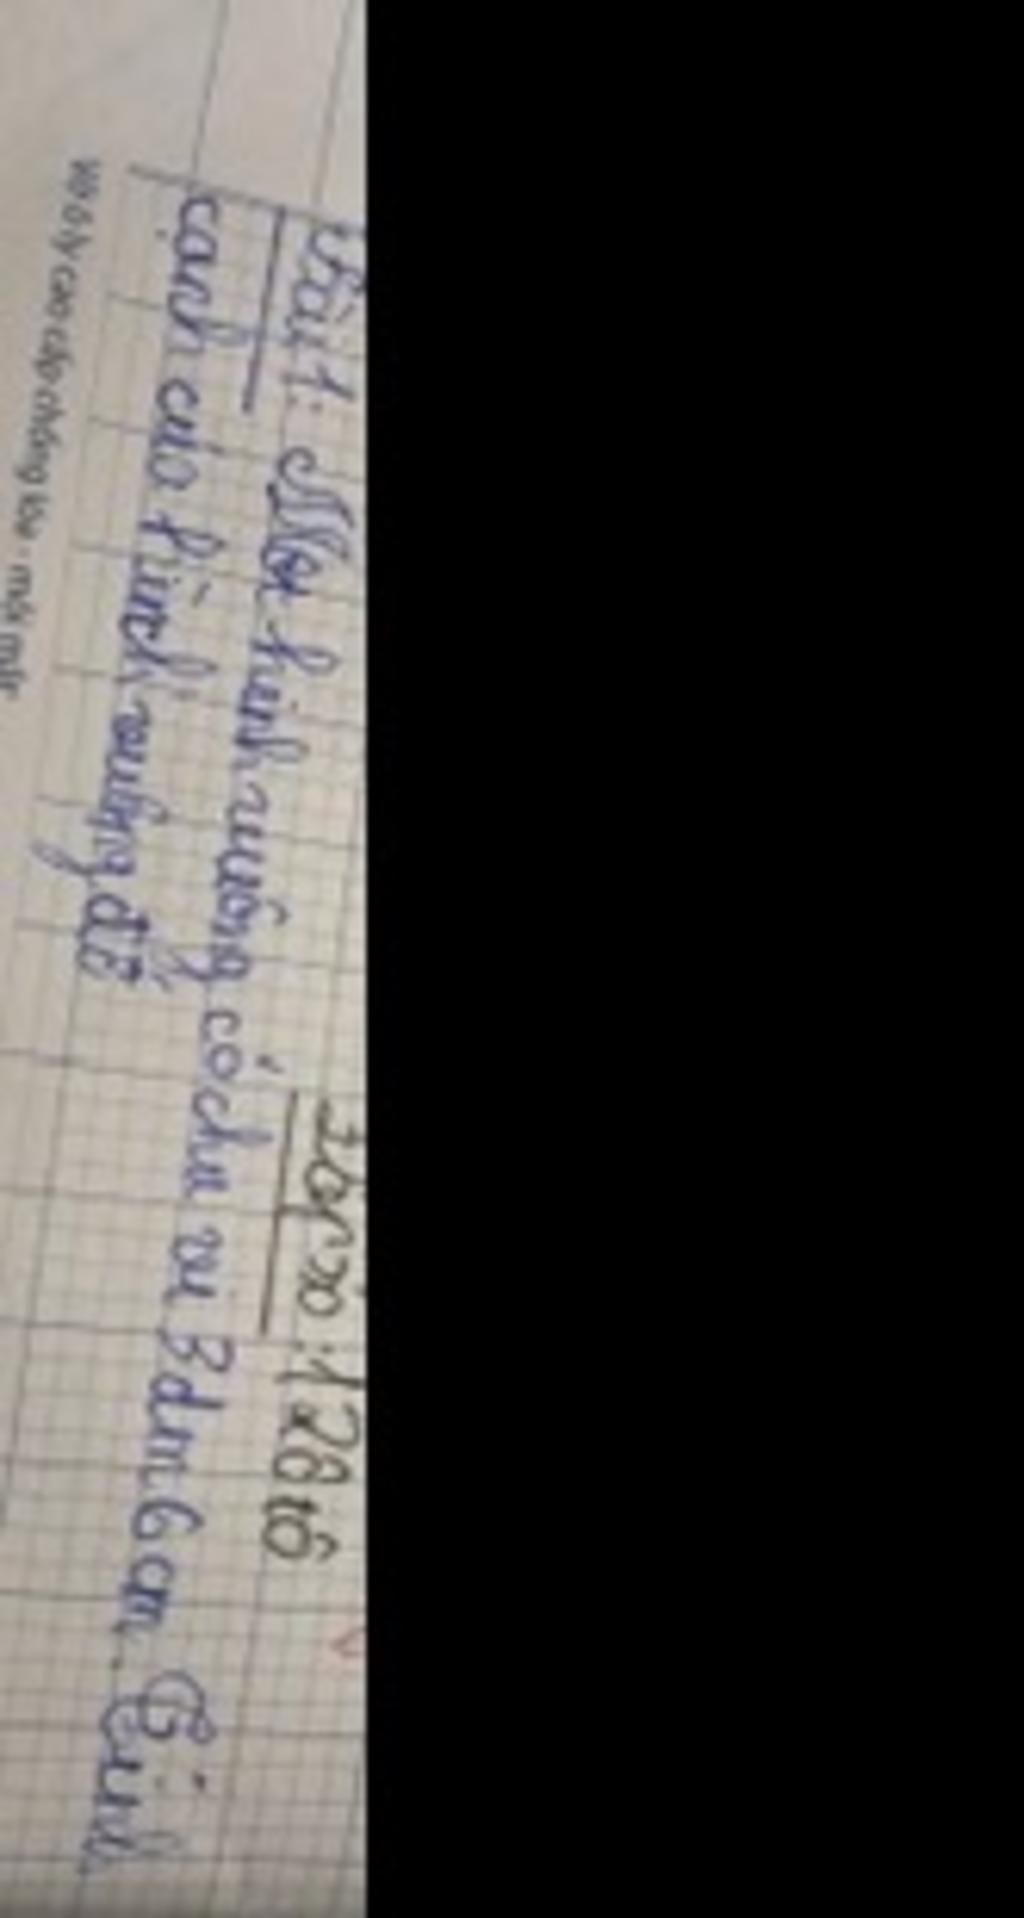 Đáp số: 128 tô
Bài 1: Một hình vuông có chu vi 3dm6cm. Tính
cạnh của hình vuông đó
Vở ô ly cao cấp chống lóa - mỏi